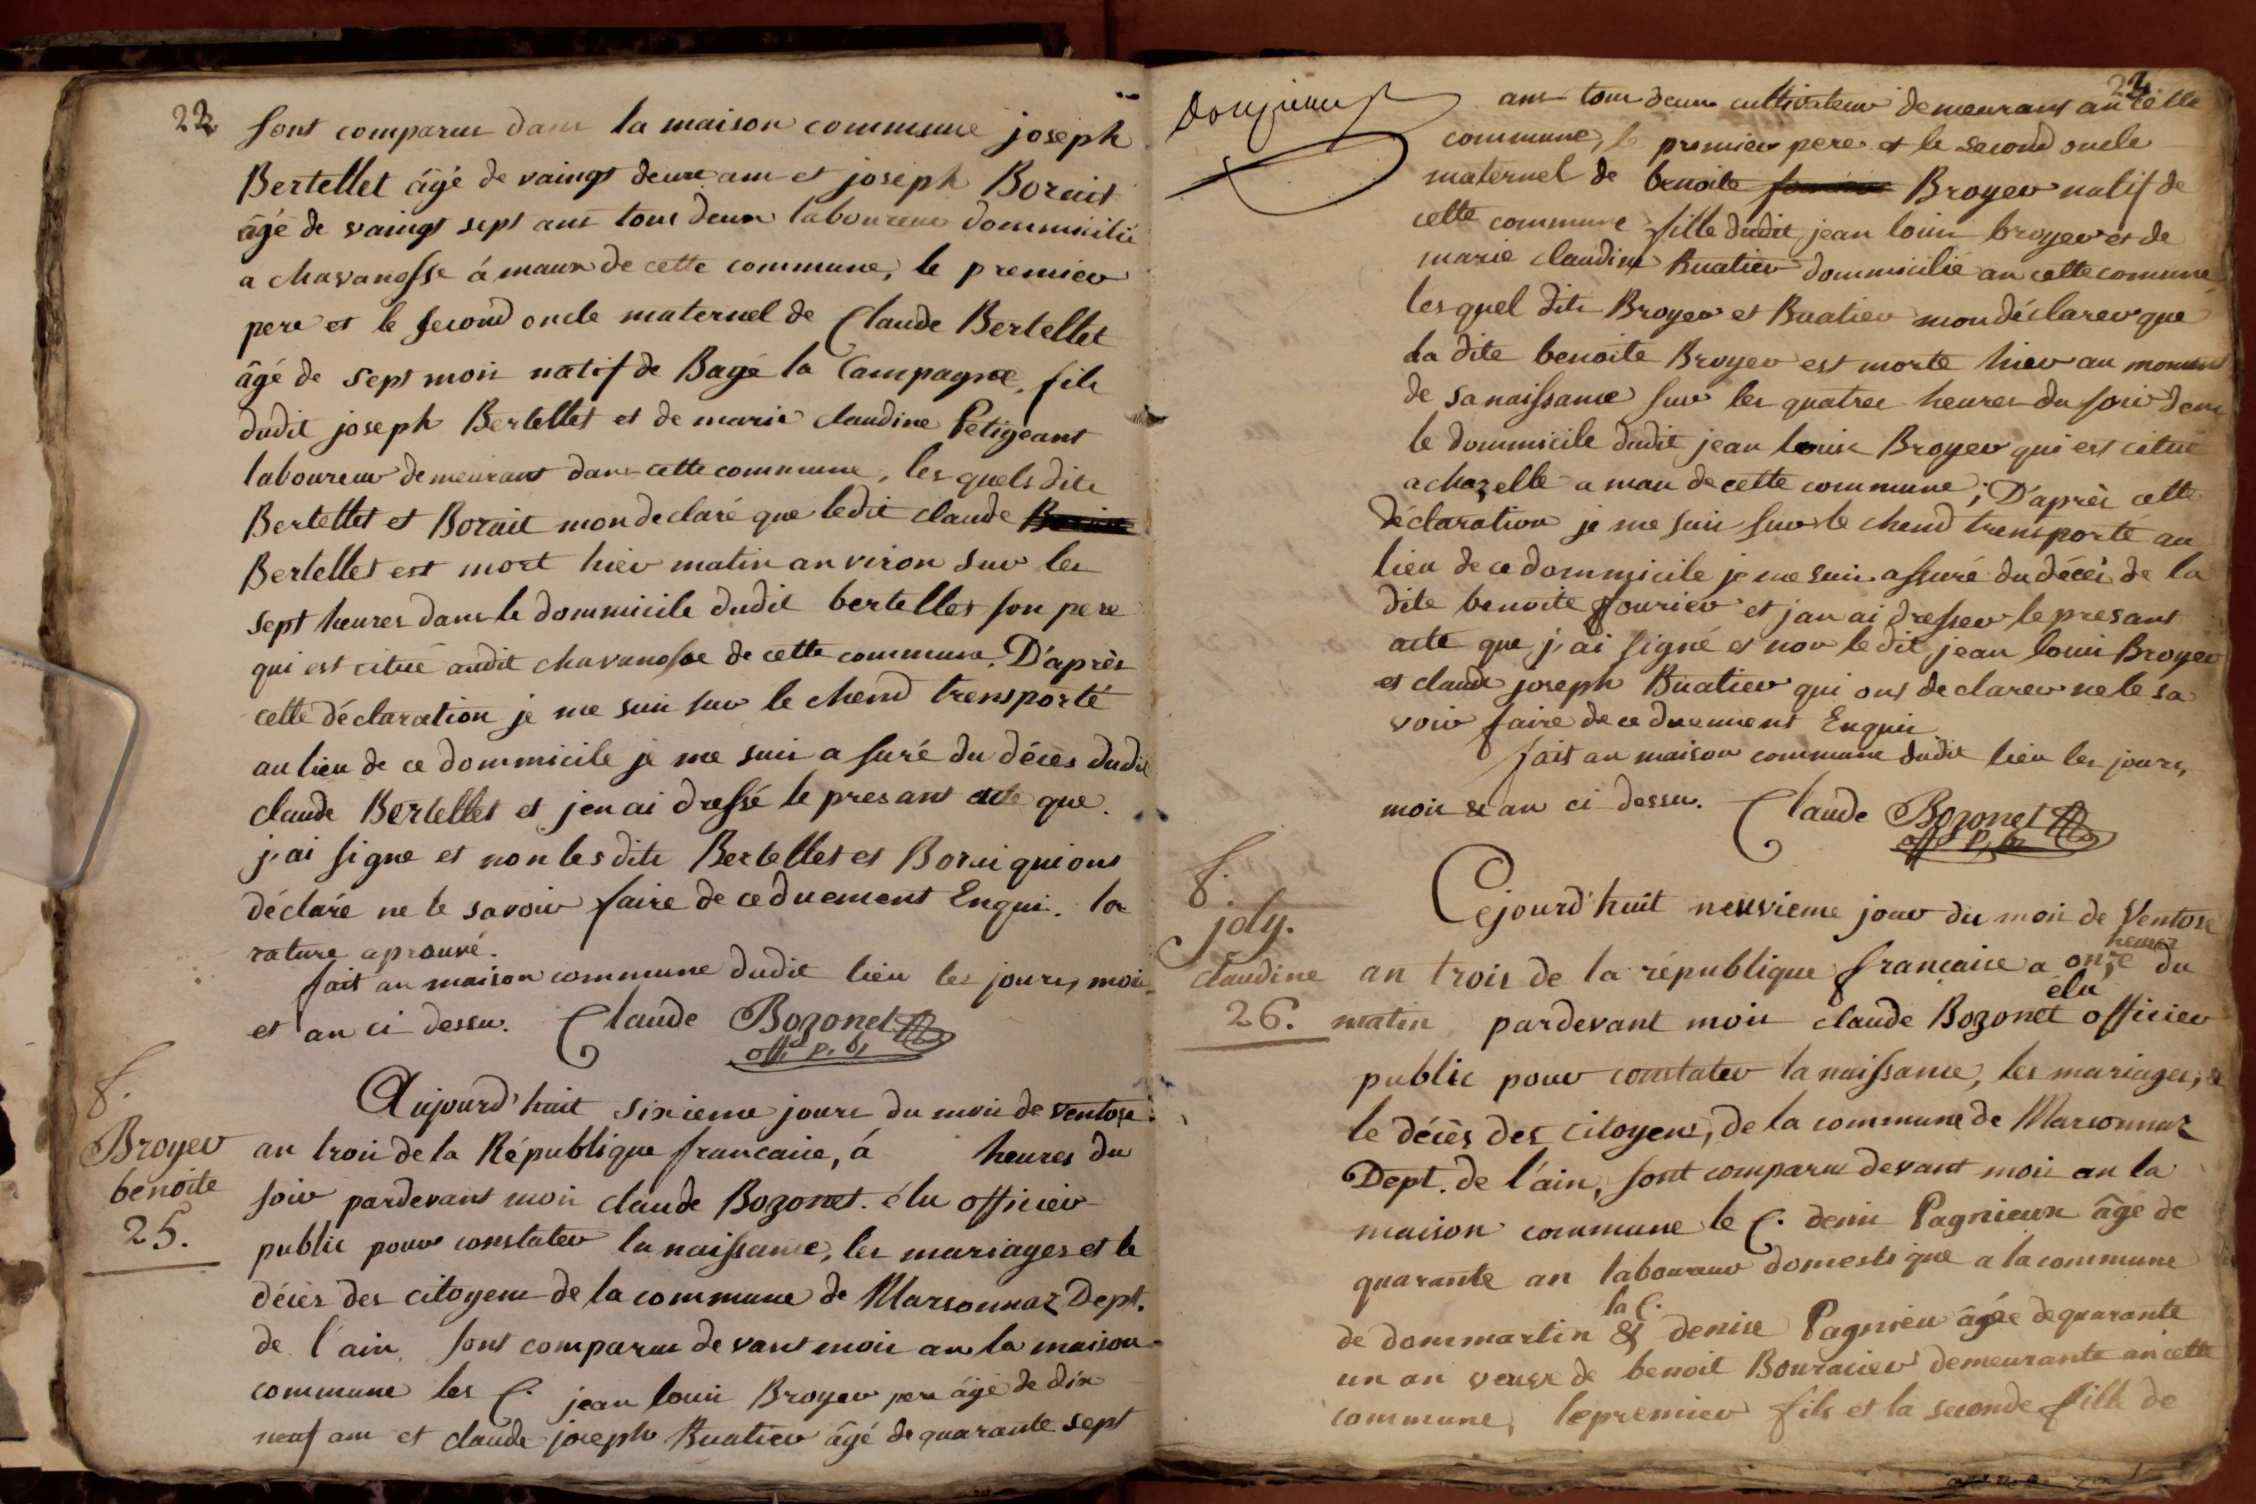 22
sont comparus dans la maison commune joseph
Bertellet âgé de vaingt deux ans et joseph Borait
âgé de vaingt sept ans tous deux laboureur dommicilié
a chavanosse á maux de cette commune, le premier
pere et le second oncle maternel de Claude Bertellet
âgé de sept mois natif de Bagé la Campagne, fils
dudit joseph Bertellet et de marie claudine Petigeant
laboureur demeurant dans cette commune, les quels dits
Bertellet et Borait mon declaré que ledit claude
Bertellet est mort hier matin anviron sur les
sept heures dans le dommicile dudit bertellet son pere
qui est citué audit chavanosse de cette commune. D'après
cette déclaration je me suis sur le chend trensporté
au lieu de ce dommicile je me suis a suré du décès dudit
claude Bertellet et jen ai dressé le presant acte que
j'ai signe et non les dits Bertellet et Borai qui ont
déclaré ne le savoir faire de ce duement Enquis. la
rature aprouvé.
fait au maison commune dudit lieu les jours, mois
et an ci dessu. Claude Bozonet
off. p. b,
8.
Broyer
benoite
25.
Aujourd'huit sixieme jours du mois de ventose
an trois de la République francaise, á heures du
soir pardevant mois claude Bozonet. élu officier
public pour constater la naissance, les mariages et le
décès des citoyens de la commune de Marsonnaz Dept.
de l'ain, sont comparus devant mois an la maison
commune les C. jean louis Broyer pere âgé de dix
neuf ans et claude joseph Buatier âgé de quarante sept
ans tous deux cultivateur demeurant an cette
commune, le premier pere et le second oncle
maternel de benoite Broyer natif de
cette commune fille dudit jean louis broyer et de
marie claudine Buatier dommicilié an cette comune
les quel dits Broyer et Buatier mon déclarer que
la dite benoite Broyer est morte hier au moment
de sa naissance sur les quatree heures du soir dans
le dommicile dudit jean louis Broyer qui est citué
a chazelle a mau de cette commune; D'après cette
déclaration je me suis sur le chend trensporté au
lieu de ce dommicile je me suis assuré du décès de la
dite benoite fourier et j'an ai dresser le presant
acte que j'ai signé et non le dit jean louis Broyer
et claude joseph Buatier qui ont declarer ne le sa
voir faire de ce duement Enquis
fait au maison commune dudit lieu les jours,
mois & an ci dessu. Claude Bozonet
off. p. b.
8.
joly.
claudine
26.
Cejourd'huit neuvieme jour du mois de Ventose
heures
an trois de la république francaise a onze du
élu
matin pardevant mois claude Bozonet officier
public pour constater la naissance, les mariages, &
le décès des citoyens, de la commune de Marsonnaz
Dept. de l'ain, sont comparus devant mois an la
maison commune le C. denis Pagnieux âgé de
quarante an laboureur domestique a la commune
la C.
de dommartin & denise Pagnieu âgée de quarante
un an veuve de benoit Bouracier demeurante an cette
commune, le premier fils et la seconde fille de